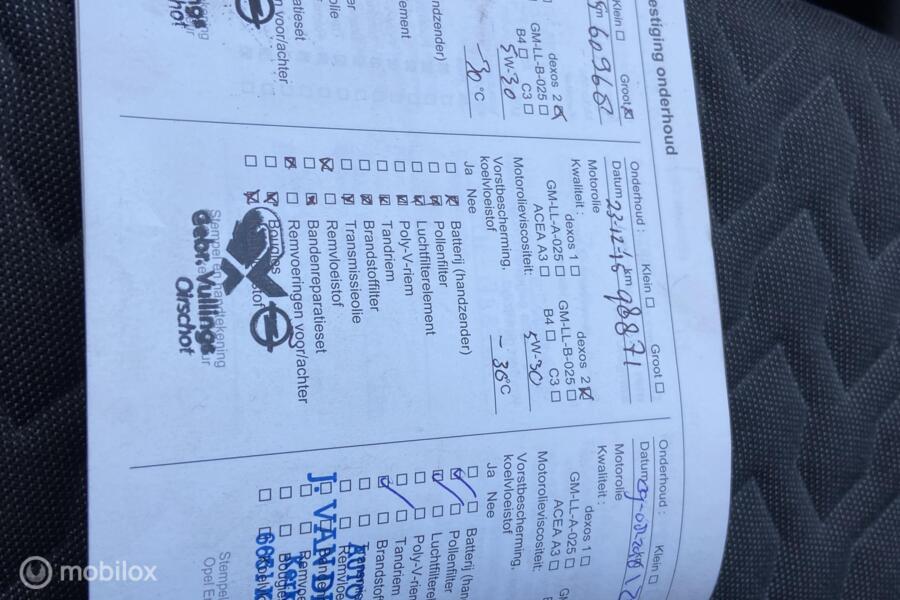 estiging onderhoud
Klein Groot
km 609651
dexos 2
GM-LL-B-025
B4 C3
5W-30
-30 °C
andzender)
element
olie
n voor/achter
aties​et
Onderhoud : Klein Groot
Datum 23-12-16 km 98871
Motorolie
Kwaliteit : dexos 1 dexos 2
GM-LL-A-025 GM-LL-B-025
ACEA A3 B4 C3
Motorolieviscositeit: 5W-30
Vorstbescherming,
koelvloeistof - 36 °C
Ja Nee
Batterij (handzender)
Pollenfilter
Luchtfilterelement
Poly-V-riem
Tandriem
Brandstoffilter
Transmissieolie
Remvloeistof
Bandenreparatieset
Remvoeringen voor/achter
Bougies
Stempel en handtekening
Gebr. Vullings
Oirschot
Onderhoud : Klein
Datum
Motorolie
Kwaliteit :
dexos 1
GM-LL-A-025
ACEA A3
Motorolieviscositeit:
Vorstbescherming,
koelvloeistof
Ja Nee
Batterij (h
Pollenfilter
Luchtfiltere
Poly-V-r
Tandriem
Brandst
Remvloe
Remvo
Bougie
J. VAN D
Stempel
Opel E
mobilox